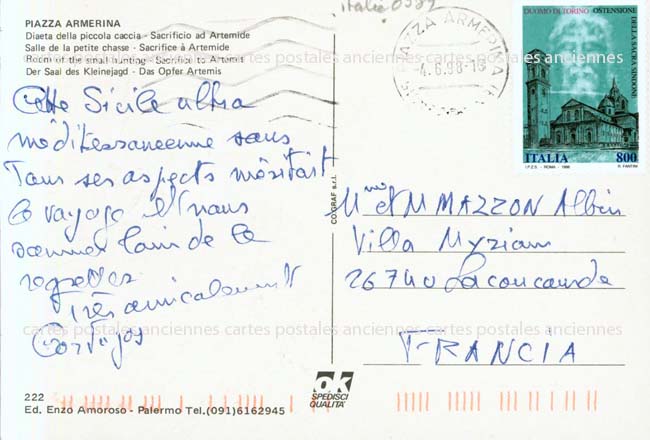 PIAZZA ARMERINA
Diaeta della piccola caccia - Sacrificio ad Artemide
Salle de la petite chasse - Sacrifice à Artemide
Room of the small hunting - Sacrifice to Artemis
Der Saal des Kleinejagd - Das Opfer Artemis
Cette Sicile ultra
méditerranéenne sous
Tous ses aspects méritait
Ce voyage et nous
sommes loin de le
regretter
Très amicalement
222
Ed. Enzo Amoroso - Palermo Tel.(091)6162945
COGRAF s.r.l.
ok
SPEDISCI
QUALITA'
italie 0382
PIAZZA ARMERINA
-4.6.98-18
DUOMO DI TORINO OSTENSIONE
DELLA SACRA SINDONE
ITALIA 800
I.P.Z.S. - ROMA - 1998 R. FANTINI
Mme et M MAZZON Albin
Villa Myriam
26740 La coucourde
FRANCIA
cartes postales anciennes cartes postales anciennes cartes postales anciennes
cartes postales anciennes cartes postales anciennes cartes postales anciennes